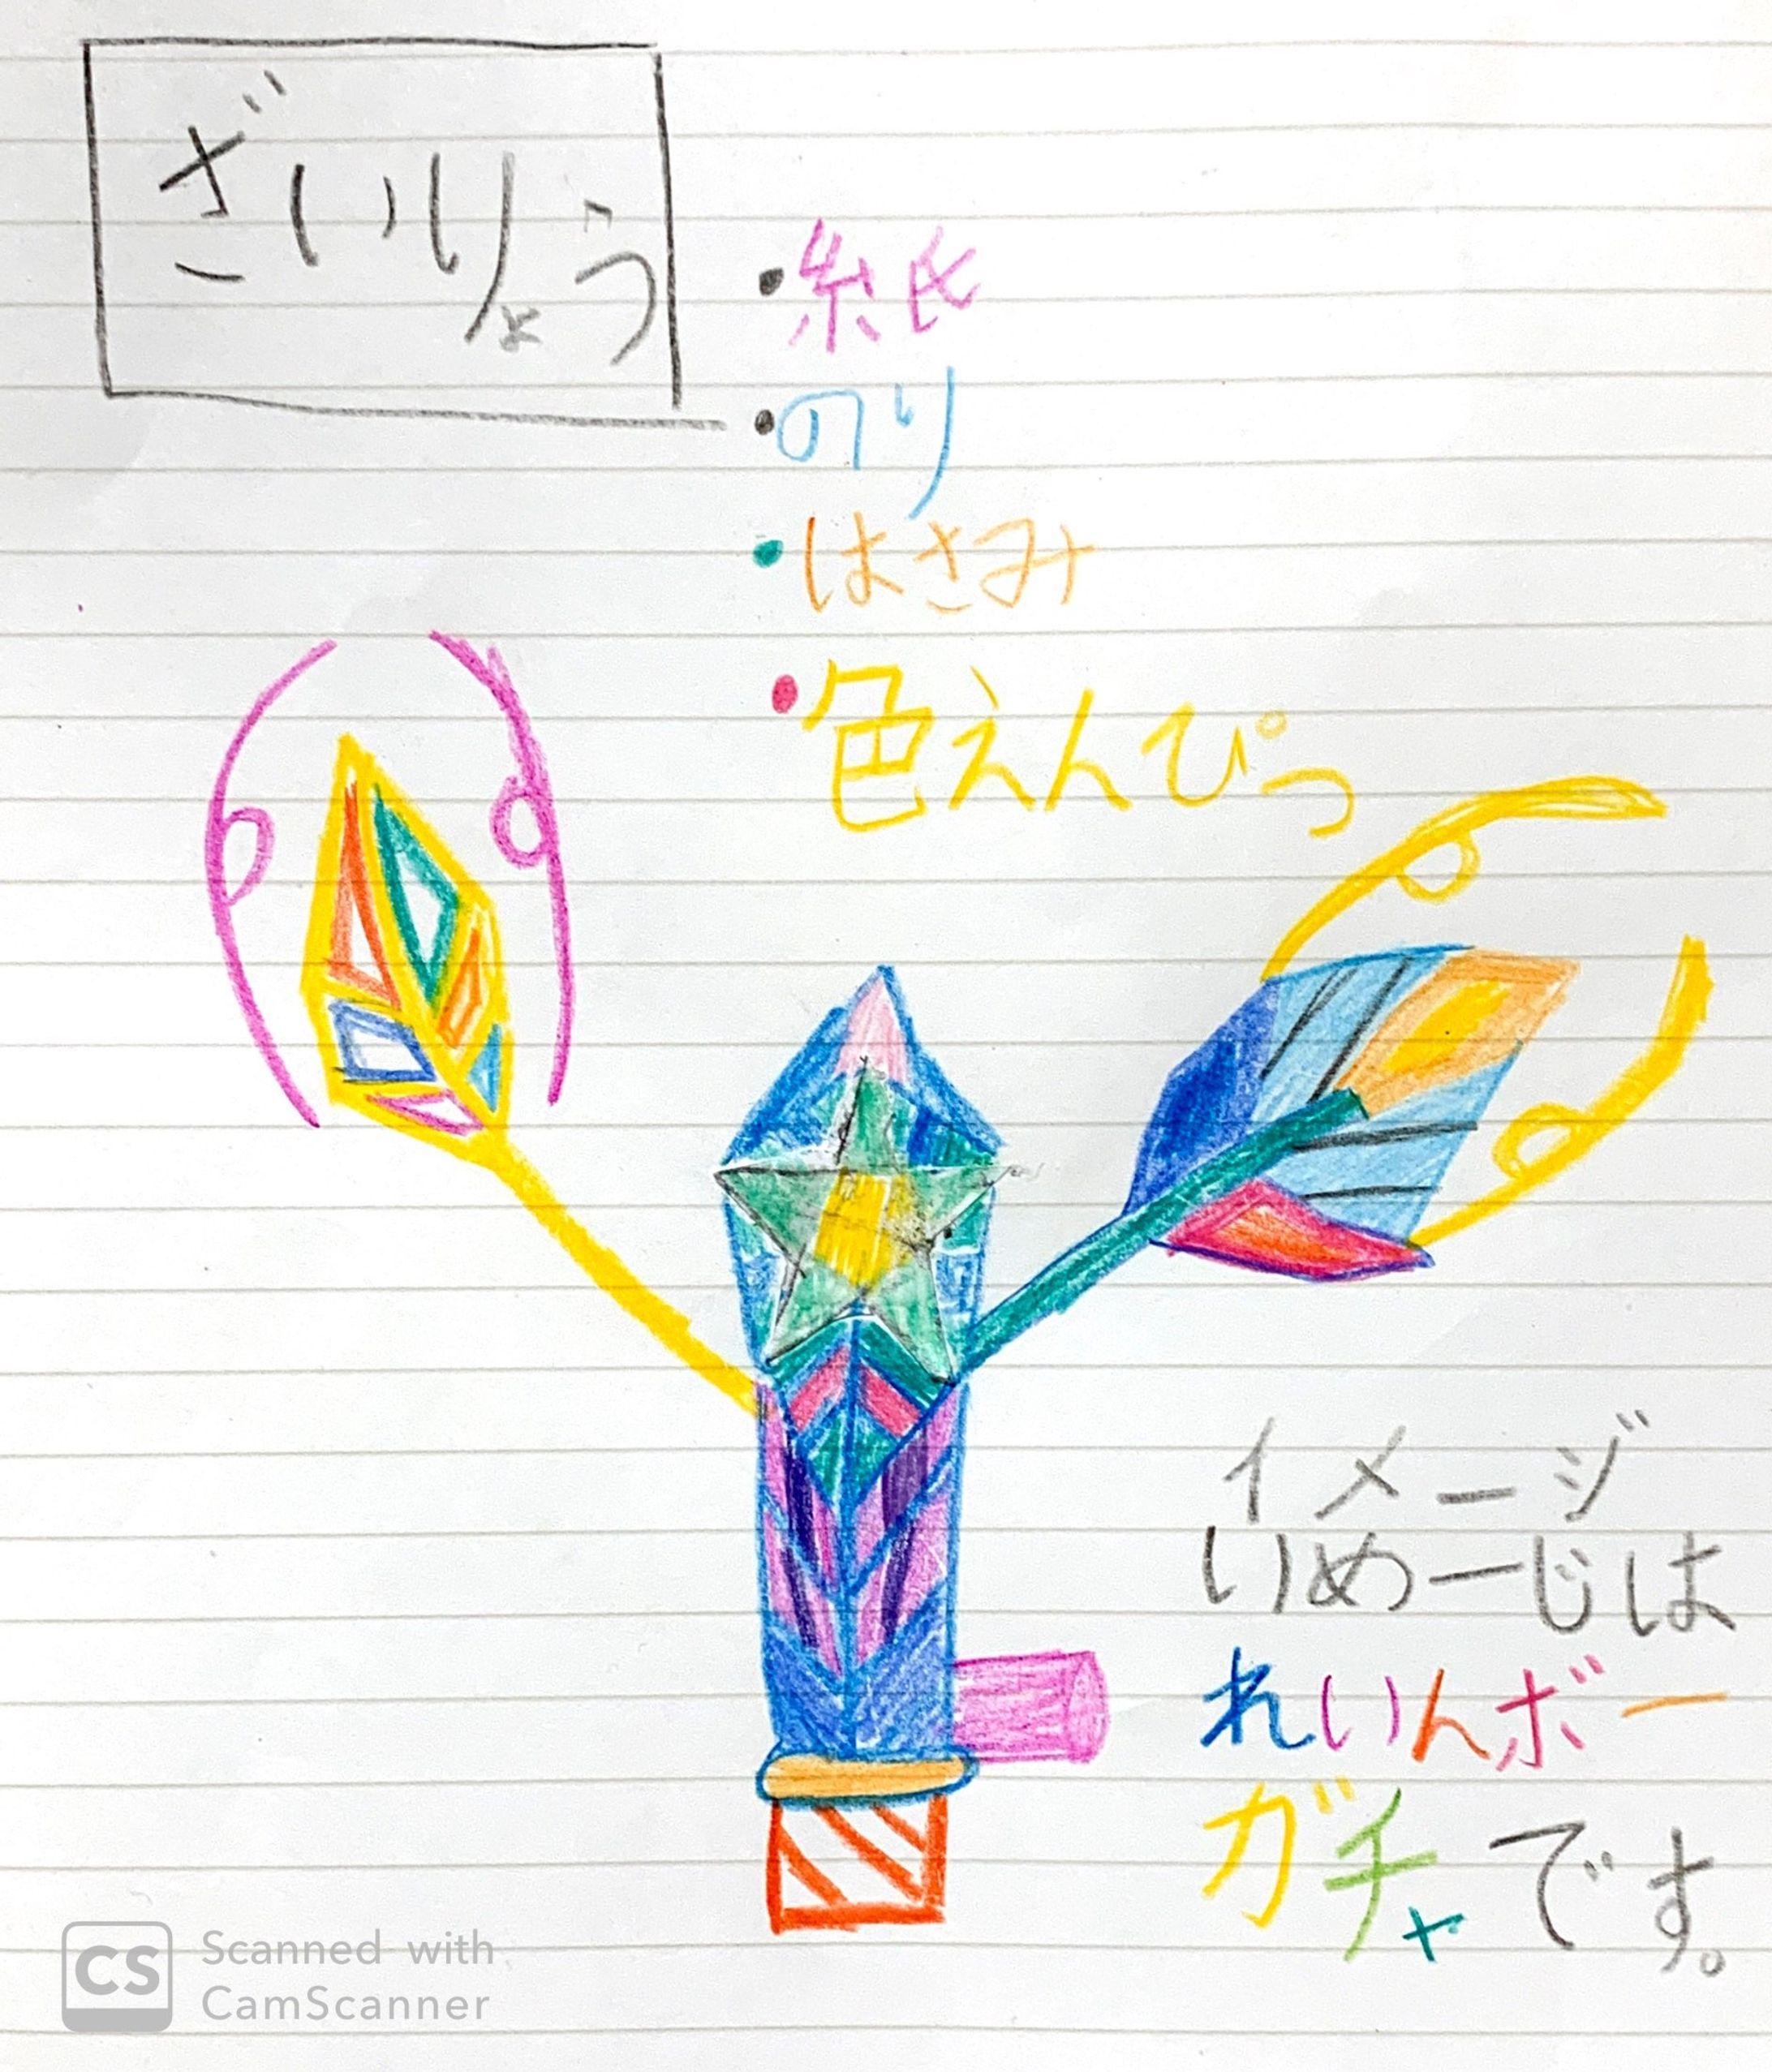 ざいりょう
・紙
・のり
・はさみ
・色えんぴつ
イメージ
いめーじは
れいんボー
ガチャです。
CS Scanned with
CamScanner